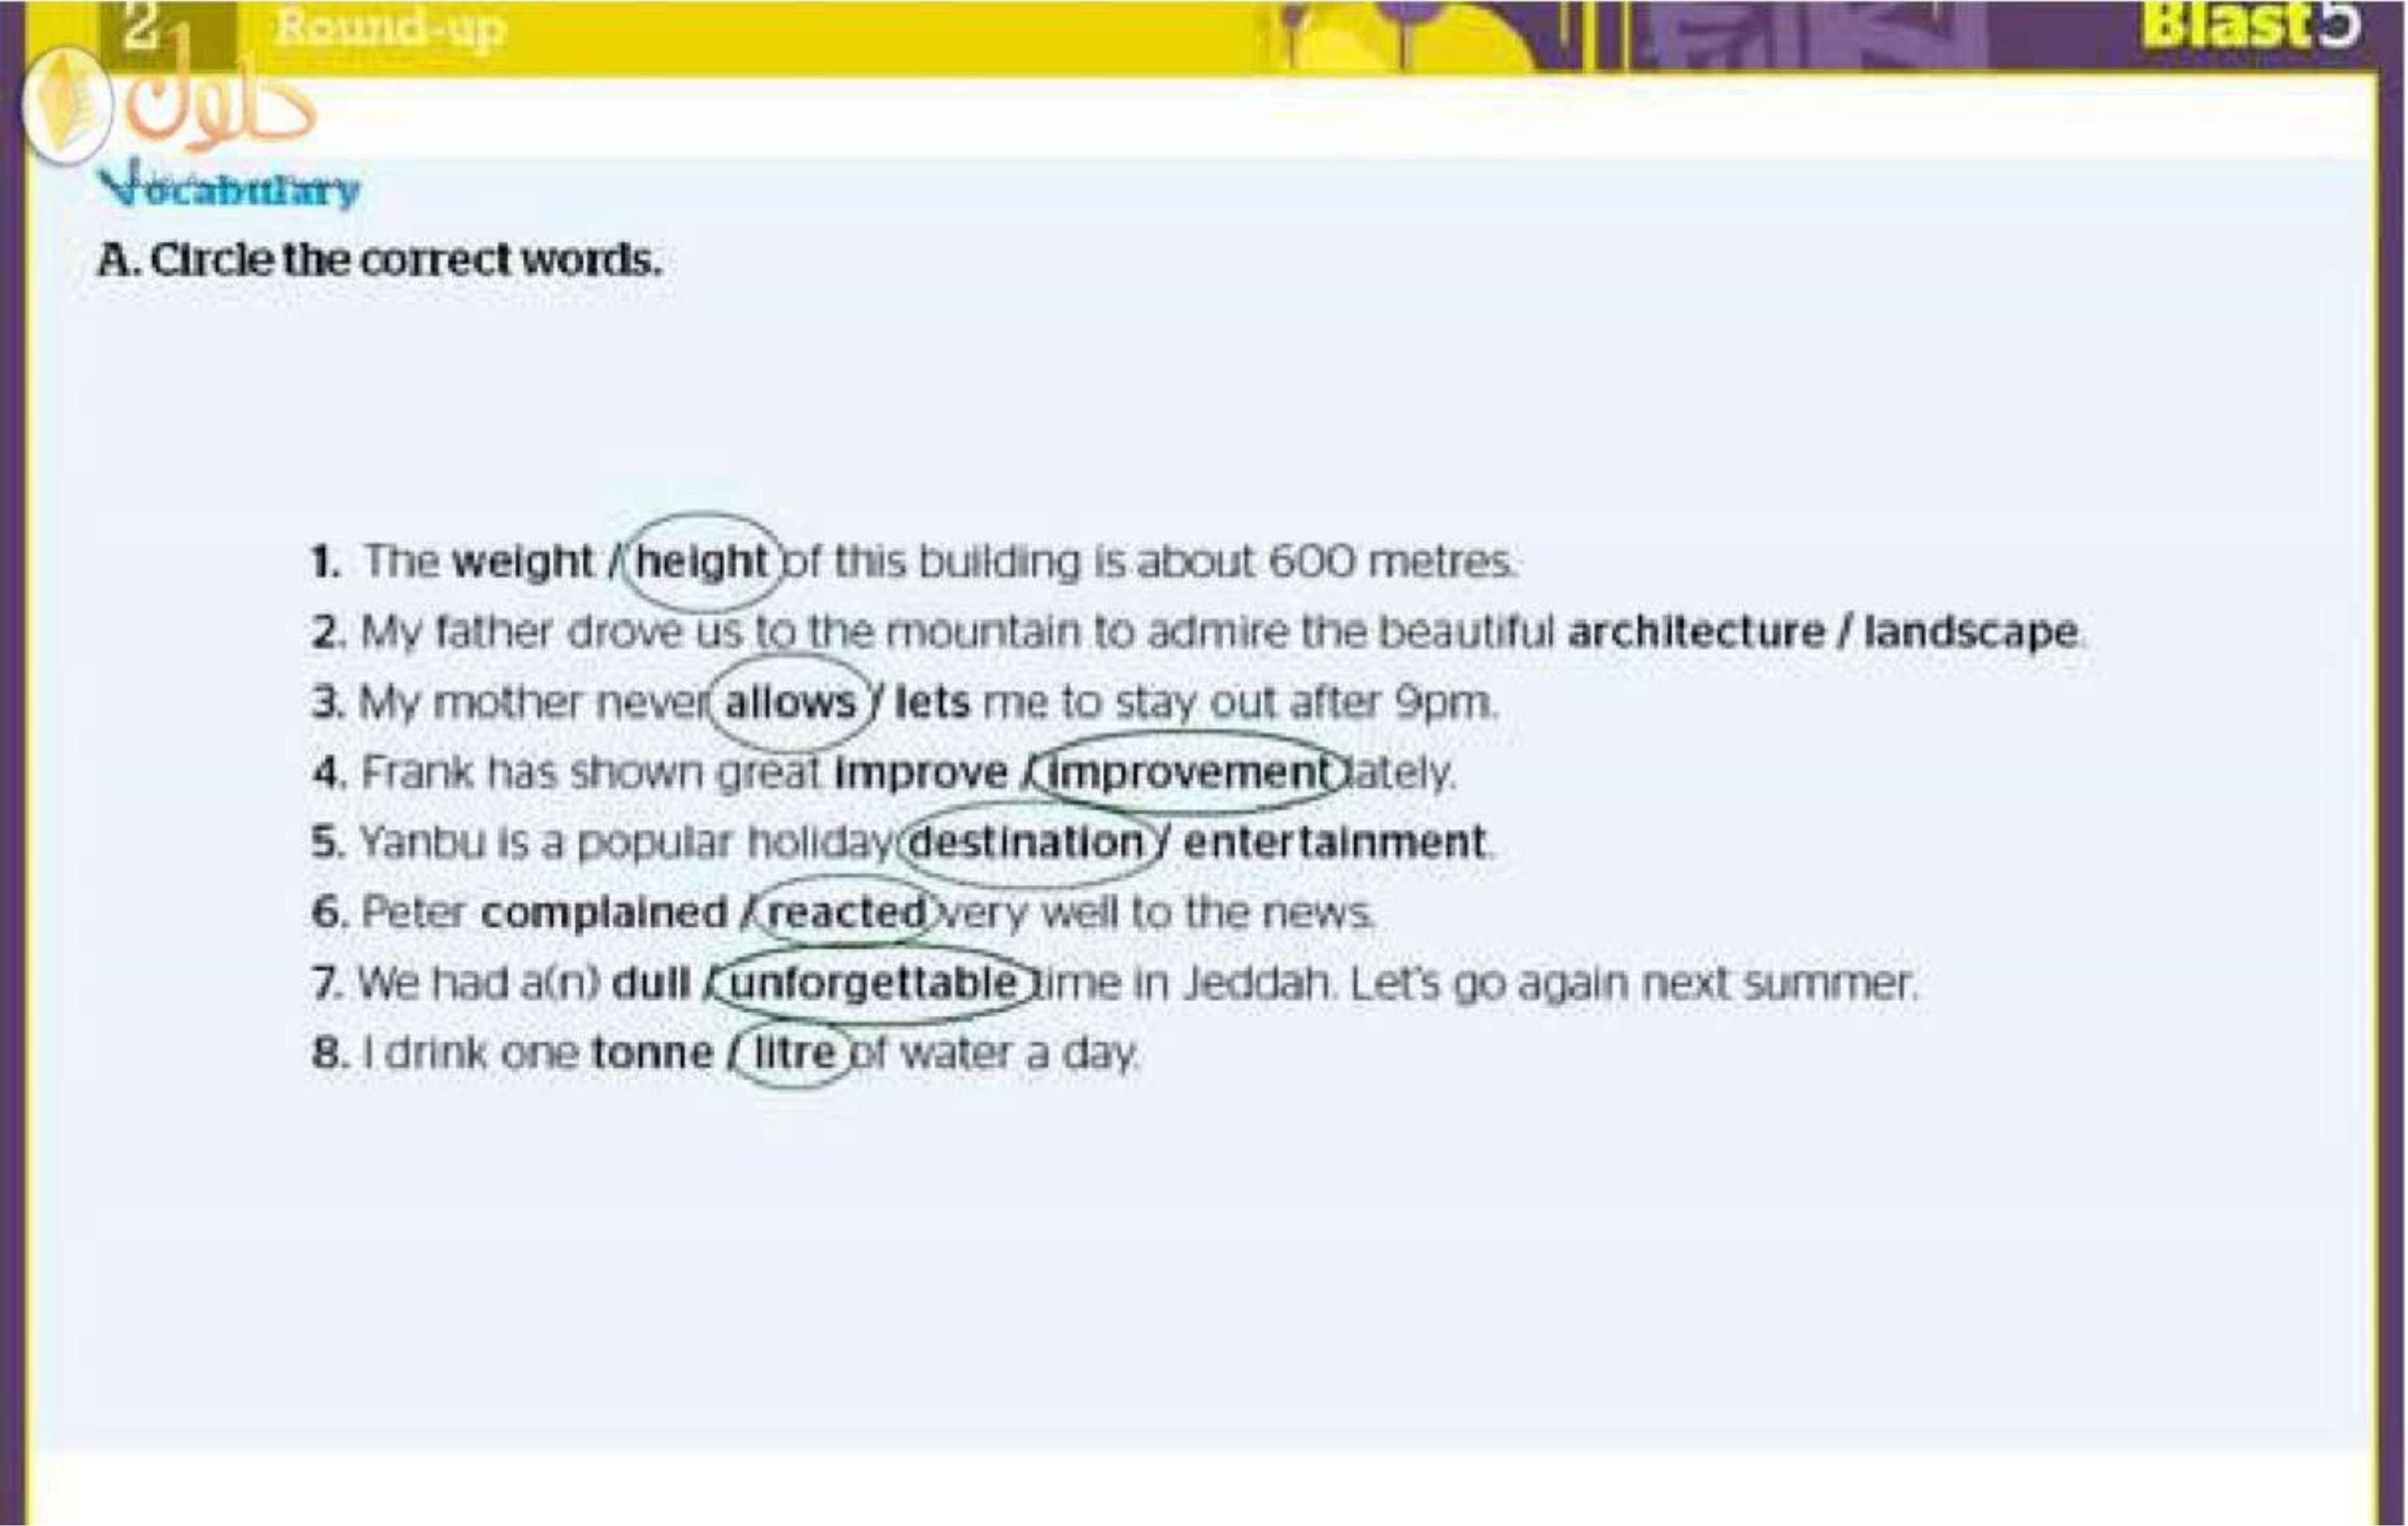 2 Round-up
Blast5
حلول
Vocabulary
A. Circle the correct words.
1. The weight / height of this building is about 600 metres.
2. My father drove us to the mountain to admire the beautiful architecture / landscape.
3. My mother never allows / lets me to stay out after 9pm.
4. Frank has shown great improve / improvement lately.
5. Yanbu is a popular holiday destination / entertainment.
6. Peter complained / reacted very well to the news.
7. We had a(n) dull / unforgettable time in Jeddah. Let's go again next summer.
8. I drink one tonne / litre of water a day.